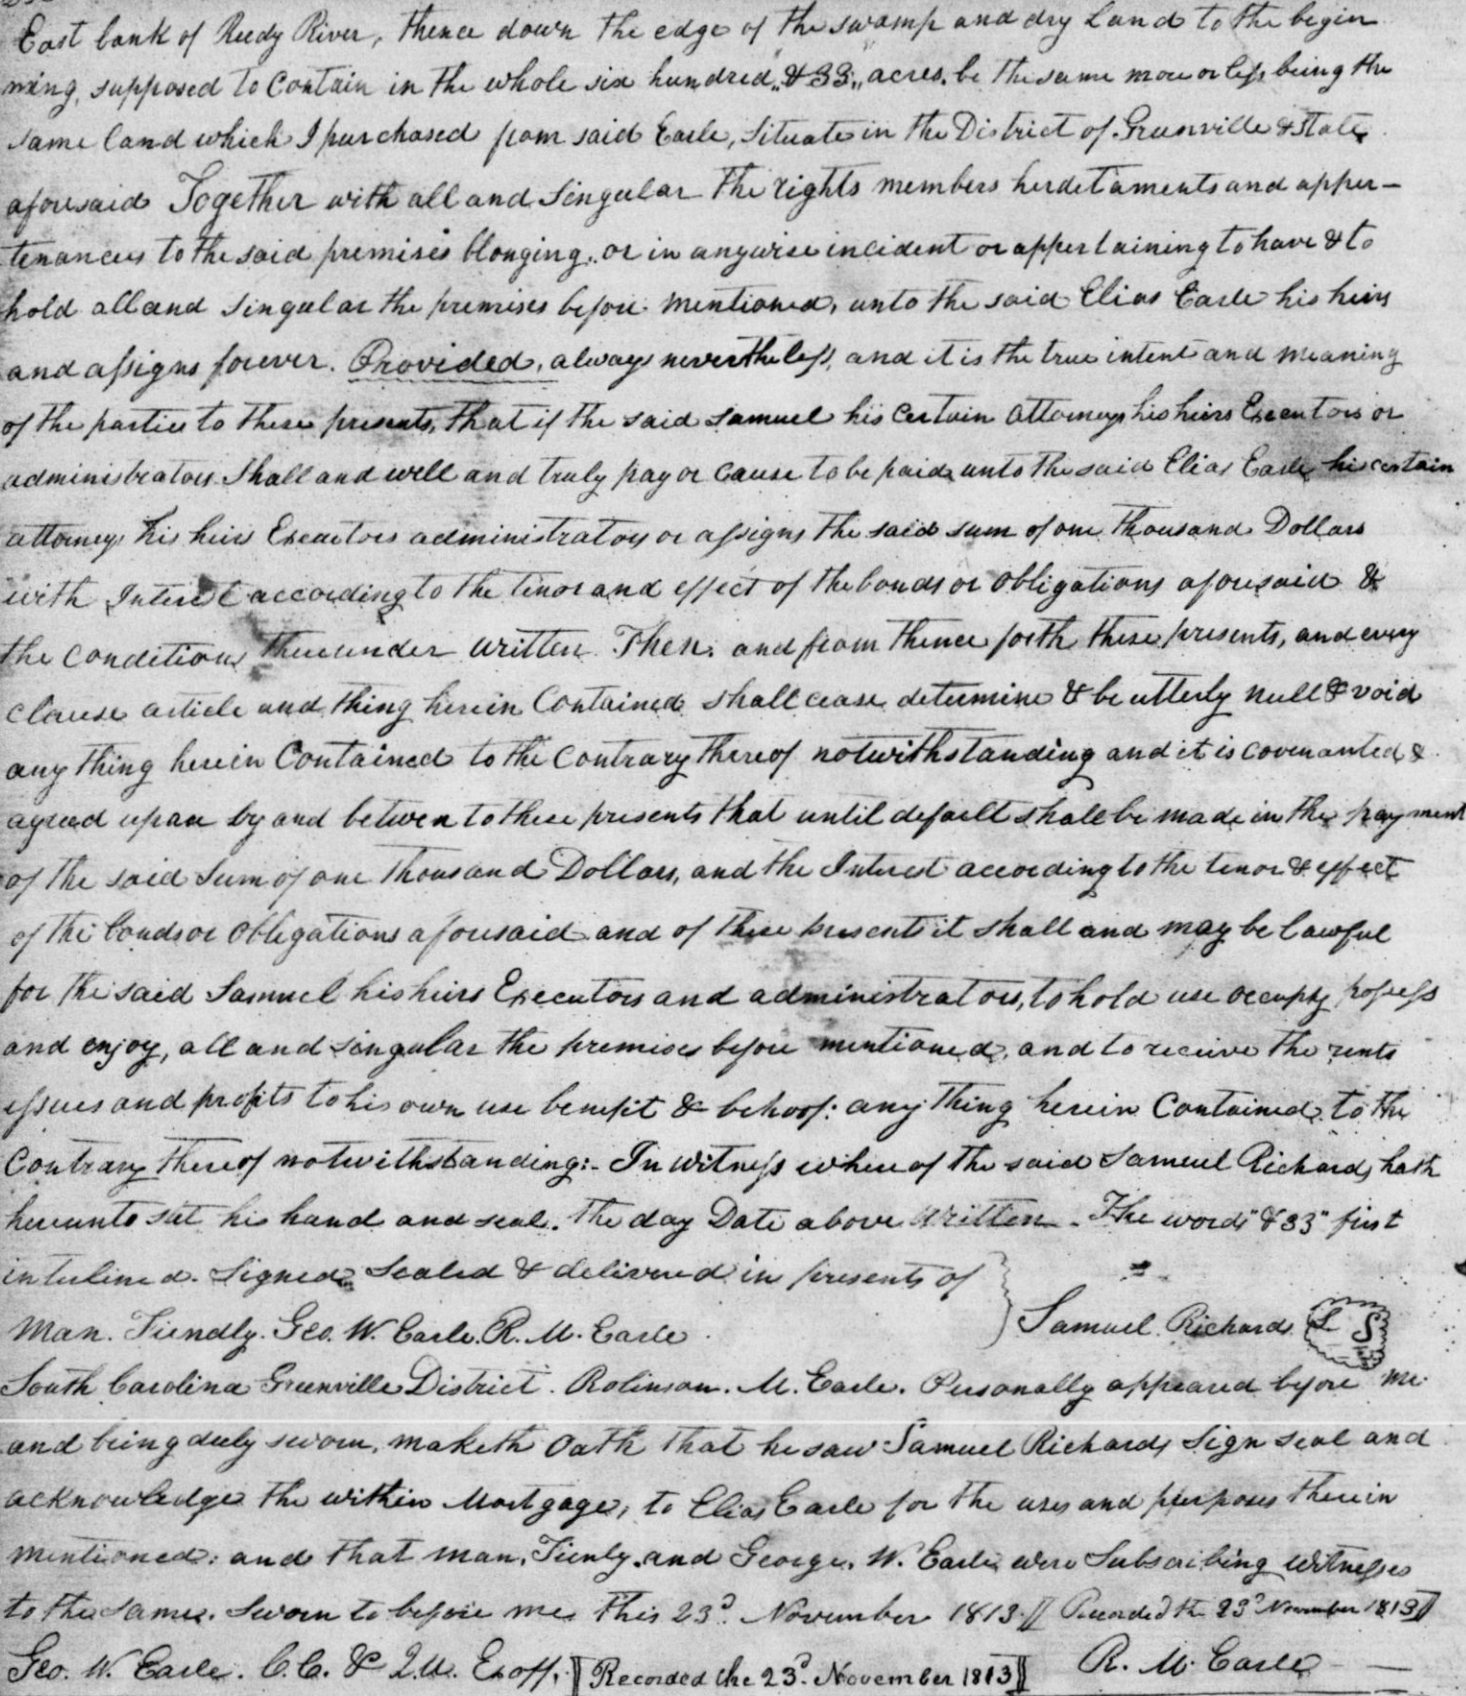 East bank of Reedy River, thence down the edge of the swamp and dry Land to the begin
ning, supposed to Contain in the whole six hundred "& 33" acres. be the same more or less being the
same land which I purchased from said Earle, Situate in the District of Greenville & State
aforesaid Together with all and Singular the rights members herdetaments and apper-
tenances to the said premises blonging, or in anywise incident or appertaining to have & to
hold all and singular the premises before mentioned, unto the said Elias Earle his heirs
and assigns forever. Provided, always nevertheless, and it is the true intent and meaning
of the parties to these presents, that if the said Samuel his certain attorney his heirs Executors or
administrators Shall and will and truly pay or Cause to be paid unto the said Elias Earle his certain
attorney his heirs Executors administrators or assigns the said sum of one thousand Dollars
with Interest according to the tenor and effect of the bonds or obligations aforesaid &
the Conditions thereunder written Then. and from thence forth these presents, and every
clause article and thing herein Contained shall cease determine & be utterly null & void
any thing herein Contained to the Contrary thereof notwithstanding and it is covenanted &
agreed upon by and between to these presents that until defaelt shall be made in the payment
of the said Sum of one thousand Dollars, and the Interest according to the tenor & effect
of the bonds or obligations aforesaid and of these presents it shall and may be lawful
for the said Samuel his heirs Executors and administrators, to hold use occupy possess
and enjoy, all and singular the premises before mentioned, and to receive the rents
issues and profits to his own use benefit & behoof: any thing herein Contained to the
Contrary thereof notwithstanding:- In witness whereof the said Samuel Richards hath
hereunto set his hand and seal. the day Date above written - The words "& 33" first
interlined. Signed Sealed & delivered in presents of
Man. Tiendly. Geo. W. Earle. R. M. Earle. Samuel Richards L S
South Carolina Greenville District. Robinson. M. Earle. Personally appeared before me
and being duly sworn, maketh Oath that he saw Samuel Richards Sign seal and
acknowledge the within Mortgage, to Elias Earle for the uses and purposes therein
mentioned: and that man. Tienly. and George. W. Earle were Subscribing witnesses
to the same. Sworn to before me this 23d. November 1813. Recorded the 23d November 1813
Geo. W. Earle. C.C. & Q.U. Exoff. Recorded the 23d. November 1813 R. M. Earle